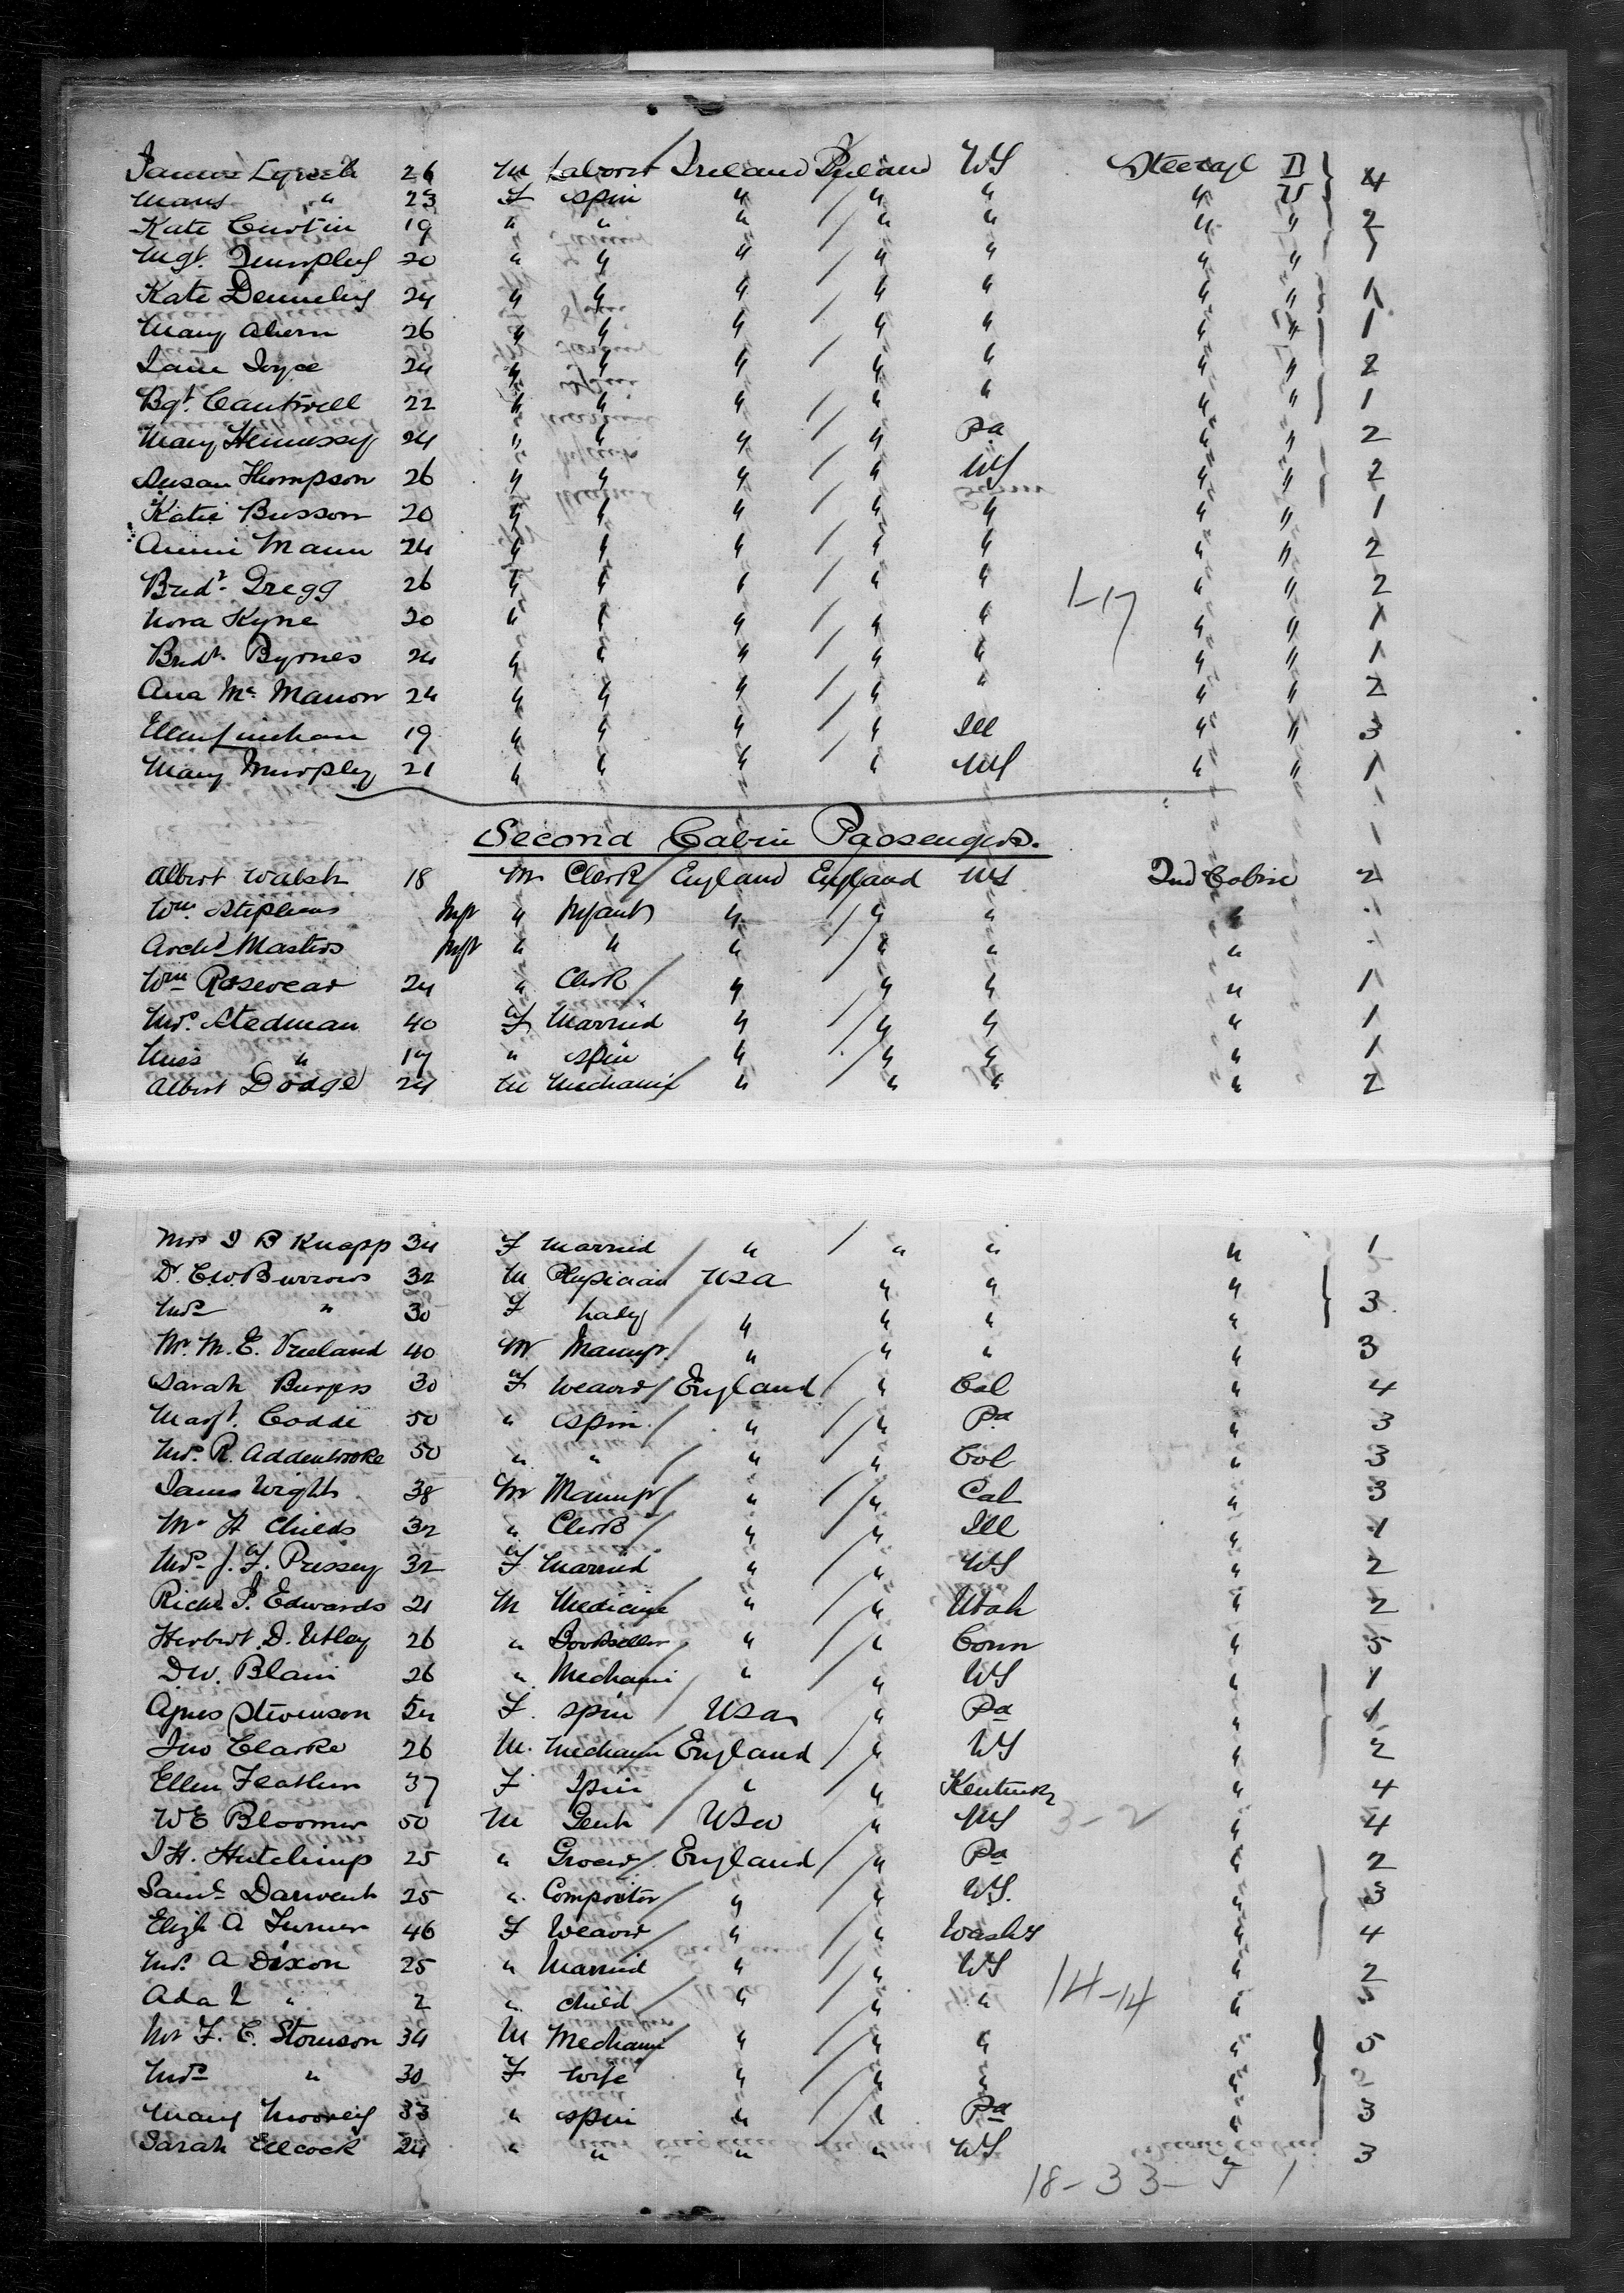 James Lynch 26 M Laborer Ireland Ireland US Steerage II 4
Mary " 23 F Spin " " " " "
Kate Curtin 19 " " " " " " " 2
Mgt. Murphy 20 " " " " " " " 1
Kate Dennehy 24 " " " " " " " 1
Mary Ahern 26 " " " " " " " 1
Jane Joyce 24 " " " " " " " 2
Bgt. Cantwell 22 " " " " " " " 1
Mary Hennessy 24 " " " " Pa " " 2
Susan Thompson 26 " " " " US " " 2
Katie Busson 20 " " " " " " " 1
Annie Mann 24 " " " " " " " 2
Bridt. Gregg 26 " " " " " " " 2
Nora Kyne 20 " " " " " " " 1
1-17
Bridt. Byrnes 24 " " " " " " " 1
Ana Mc Manon 24 " " " " " " " 2
Ellen Linehan 19 " " " " Ill " " 3
Mary Murphy 21 " " " " US " " 1
Second Cabin Passengers.
Albert Walsh 18 M Clerk England England US 2nd Cabin 2
Wm. Stephens Inft " Infant " " " "
Archd Masters Inft " " " " " "
Wm Rosevear 24 " Clerk " " " " 1
Mrs. Stedman 40 F Married " " " " 1
Miss " 17 " Spin " " " " 1
Albert Dodge 24 M Mechanic " " " " 2
Mrs J B Knapp 34 F Married " " " " 1
Dr. C.W. Burrows 32 M Physician USA " " "
Mrs " 30 F Lady " " " " 3
Mr. M. E. Vreeland 40 M Manufr. " " " " 3
Sarah Burgess 30 F Weaver England " Col " 4
Margt. Codde 50 " Spin " " Pa " 3
Mrs. R. Addenbrooke 50 " " " " Col " 3
James Wight 38 M Manufr " " Cal " 3
Mr H Childs 32 " Clerk " " Ill " 1
Mrs. J. F. Pussey 32 F Married " " US " 2
Richd J. Edwards 21 M Medicine " " Utah " 2
Herbert D. Utley 26 " Bookseller " " Conn " 5
D.W. Blain 26 " Mechanic " " US " 1
Agnes Stevenson 54 F. Spin USA " Pa " 1
Jno Clarke 26 M. Mechanic England " US " 2
Ellen Feather 37 F Spin " " Kentucky " 4
W E Bloomer 50 M Gent USA " US " 4
3-2
J H. Hutchings 25 " Grocer England " Pa " 2
Saml Darwent 25 " Compositor " " US. " 3
Elizh A Turner 46 F Weaver " " Washn " 4
Mrs. A Dixon 25 " Married " " US " 2
Ada L " 2 " Child " " " "
14-14
Mr F. C. Stomson 34 M Mechanic " " " " 5
Mrs " 30 F Wife " " " "
Mary Mooney 33 " Spin " " Pa " 3
Sarah Ellcock 24 " " " " US " 3
18-33-5 1